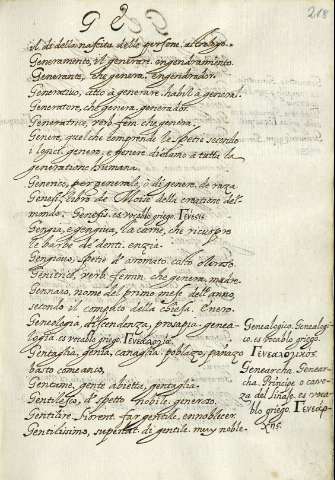 G 2
218
il dì della nascita delle persone, astrologo.
Generamento, il generare, engendramiento.
Generante, che genera. Engendrador.
Generativo, atto à generare. habil à generar.
Generatore, che genera, generador.
Generatrice, verb. fem. che genera.
Genere, quel che comprende le spetie secondo
i logici. genero, e genere diciamo a tutta la
generatione humana.
Generico, per generale, ò di genere. de raza
Genesi, libro de Mosè della creatione del
mondo. Genesis. es vocablo griego. Γένεσις
Gengia, e gengiva, la carne, che ricuopre
le barbe de denti. enzia.
Gengiovo, spetie d' aromato. caldo oloroso.
Genitrice, verb. femin. che genera, madre.
Gennaio, nome del primo mese dell' anno,
secondo il computo della chiesa. Enero.
Geneologia, discendenza, prosapia, genea-
logia es vocablo griego. Γενεαλογία.
Gentaglia, genia, canaglia. poblazo, pañazo
basto comeanco,
Gentame, gente abietta, gentaglia.
Gentilesco, d' spetto nobile. generoso.
Gentilire, hirent. far gentile, ennoblecer.
Gentilissimo, superlat. di gentile. muy noble.
Genealogico. Genealogi-
co. es vocablo griego.
Γενεαλογικός.
Genearcha. Genear-
cha. Principe o cabe-
za del linaje. es voca-
blo griego. Γενεάρ-
χης.